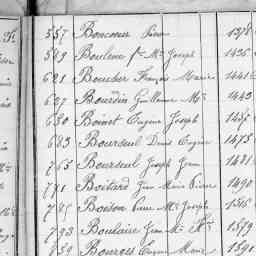 557 Boncoeur Pierre 1398
589 Boulene fs Mie Joseph 1436
621 Boucher François Marie 1441
627 Bourdin Guillaume Mie 1443
630 Boinet Eugène Joseph 1457
683 Bourseul Denis Eugène 1475
765 Bourseul Joseph Jean 1481
781 Boitard Jean Marie Pierre 1490
785 Boison Pierre Mie Joseph 1516
793 Boulaire Jean Mie 1579
859 Bourges Eugène Marie 1591